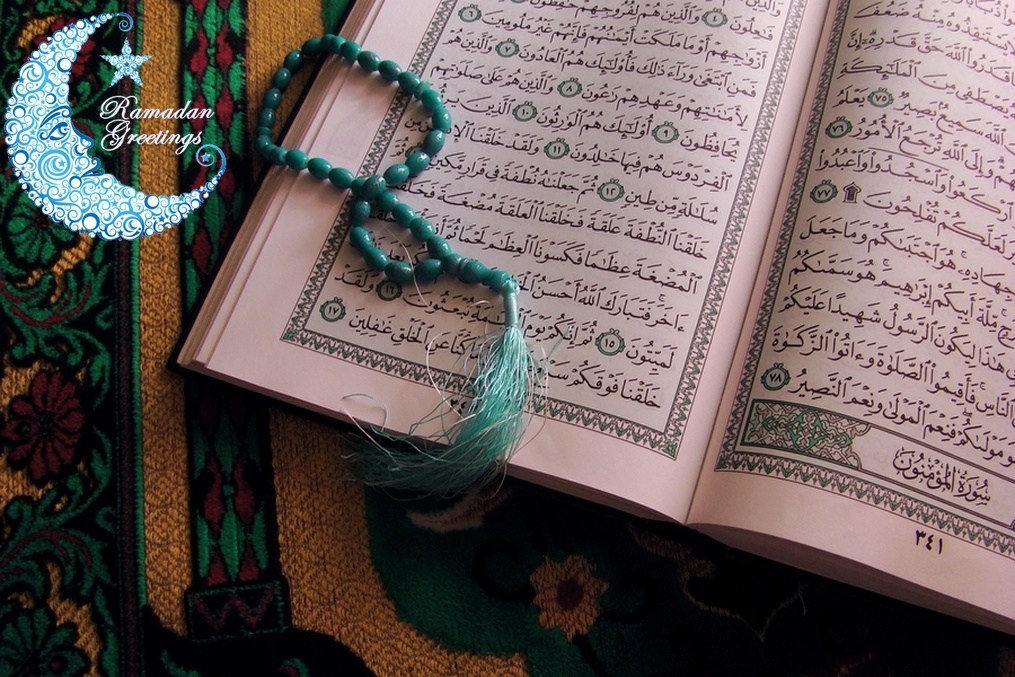 Ramadan
Greetings
ٱسْتَنقِذُوهُ مِنْهُ ضَعُفَ
قَدَرُوا۟ ٱللَّهَ حَقَّ قَدْرِهِۦٓ إِنَّ
يَصْطَفِى مِنَ ٱلْمَلَٰٓئِكَةِ
ٱللَّهَ سَمِيعٌۢ بَصِيرٌ ٧٥ يَعْلَمُ
وَإِلَى ٱللَّهِ تُرْجَعُ ٱلْأُمُورُ ٧٦
ٱرْكَعُوا۟ وَٱسْجُدُوا۟ وَٱعْبُدُوا۟
لَعَلَّكُمْ تُفْلِحُونَ ۩ ٧٧
جِهَادِهِۦ هُوَ ٱجْتَبَىٰكُمْ وَمَا جَعَلَ
مِّلَّةَ أَبِيكُمْ إِبْرَٰهِيمَ هُوَ سَمَّىٰكُمُ
هَٰذَا لِيَكُونَ ٱلرَّسُولُ شَهِيدًا عَلَيْكُمْ
ٱلنَّاسِ فَأَقِيمُوا۟ ٱلصَّلَوٰةَ وَءَاتُوا۟ ٱلزَّكَوٰةَ
مَوْلَىٰكُمْ فَنِعْمَ ٱلْمَوْلَىٰ وَنِعْمَ ٱلنَّصِيرُ ٧٨
سُورَةُ المُؤْمِنُونَ
٣٤١
فَٰعِلُونَ ٤ وَٱلَّذِينَ هُمْ لِفُرُوجِهِمْ حَٰفِظُونَ
أَزْوَٰجِهِمْ أَوْ مَا مَلَكَتْ أَيْمَٰنُهُمْ فَإِنَّهُمْ غَيْرُ مَلُومِينَ ٦
فَمَنِ ٱبْتَغَىٰ وَرَآءَ ذَٰلِكَ فَأُو۟لَٰٓئِكَ هُمُ ٱلْعَادُونَ ٧ وَٱلَّذِينَ هُمْ
لِأَمَٰنَٰتِهِمْ وَعَهْدِهِمْ رَٰعُونَ ٨ وَٱلَّذِينَ هُمْ عَلَىٰ صَلَوَٰتِهِمْ
يُحَافِظُونَ ٩ أُو۟لَٰٓئِكَ هُمُ ٱلْوَٰرِثُونَ ١٠ ٱلَّذِينَ
ٱلْفِرْدَوْسَ هُمْ فِيهَا خَٰلِدُونَ ١١ وَلَقَدْ خَلَقْنَا
سُلَٰلَةٍ مِّن طِينٍ ١٢ ثُمَّ جَعَلْنَٰهُ نُطْفَةً فِى قَرَارٍ مَّكِينٍ
خَلَقْنَا ٱلنُّطْفَةَ عَلَقَةً فَخَلَقْنَا ٱلْعَلَقَةَ مُضْغَةً فَخَلَقْنَا
ٱلْمُضْغَةَ عِظَٰمًا فَكَسَوْنَا ٱلْعِظَٰمَ لَحْمًا ثُمَّ
ءَاخَرَ فَتَبَارَكَ ٱللَّهُ أَحْسَنُ
لَمَيِّتُونَ ١٥ ثُمَّ إِنَّكُمْ يَوْمَ تُبْعَثُونَ ١٦ وَلَقَدْ
خَلَقْنَا فَوْقَكُمْ كُنَّا عَنِ ٱلْخَلْقِ غَٰفِلِينَ ١٧